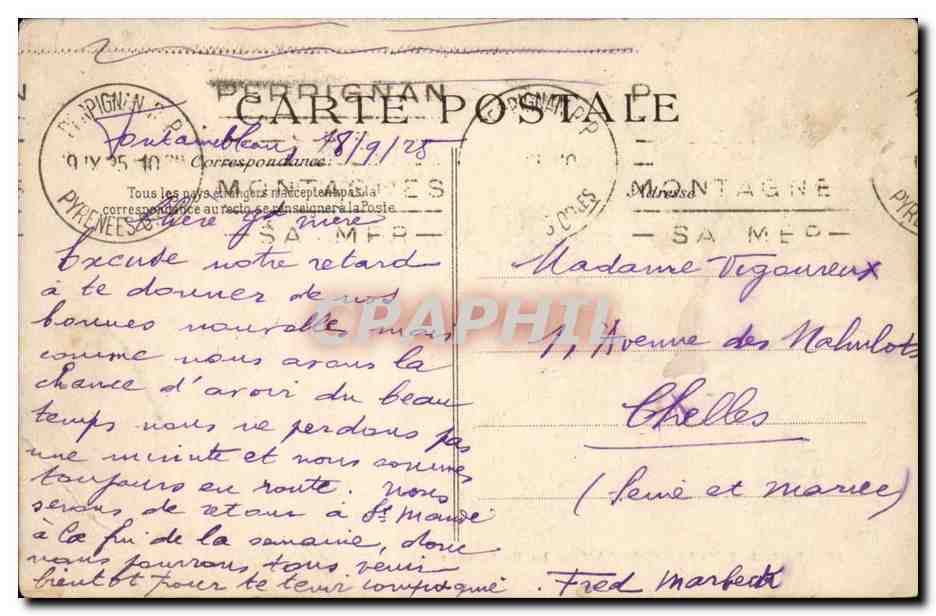 PERPIGNAN
CARTE POSTALE
PERPIGNAN R.P
9 IX 25 10
PYRENEES
Fontainebleau, 18/9/25
Correspondance:
Tous les pays étrangers n'acceptent pas la
correspondance au recto, se renseigner à la Poste
MONTAGNES
SA MER
PERPIGNAN R.P
Adresse
MONTAGNE
SA MER
Chère gd mère
Excuse notre retard
à te donner de nos
bonnes nouvelles mais
comme nous avons la
chance d'avoir du beau
temps nous ne perdons pas
une minute et nous sommes
toujours en route. Nous
serons de retour à St Mandé
à la fin de la semaine, donc
nous pourrons tous venir
bientot pour te tenir compagnie
Fred
Madame Vigoureux
Avenue des
Chelles
(Seine et Marne)
CPAPHIL